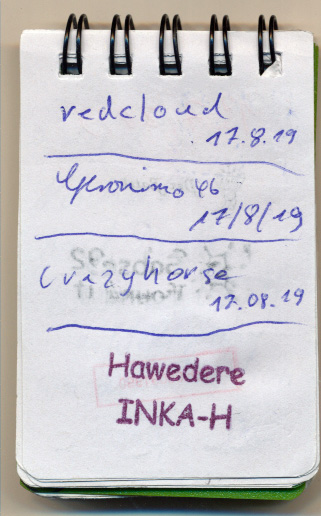 redcloud
17.8.19
Geronimo46
17/8/19
Crazyhorse
17.08.19
Hawedere
INKA-H